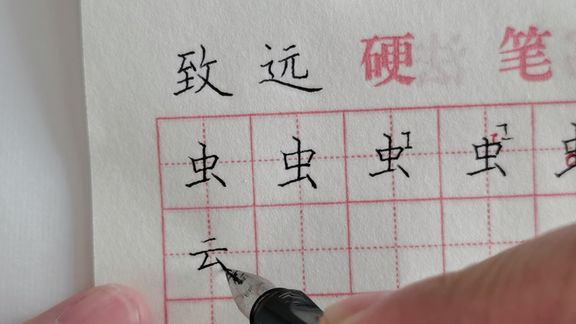 致远硬笔
虫虫虫虫
云